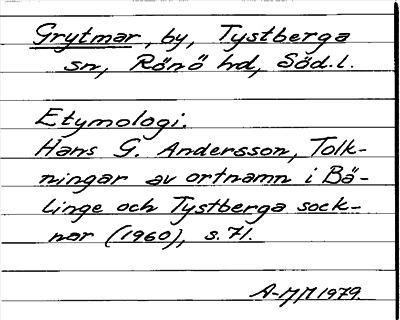 Grytmar, by, Tystberga
sn, Rönö hd, Söd.l.
Etymologi.
Hans G. Andersson, Tolk-
ningar av ortnamn i Bä-
linge och Tystberga sock-
nar (1960), s. 71.
A-MM 1979.